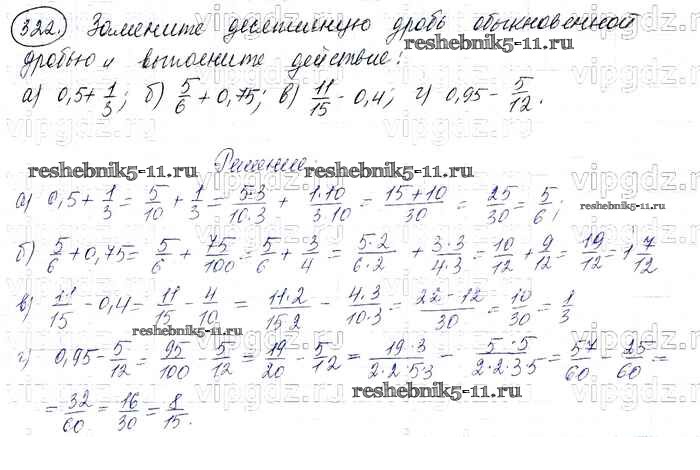 322. Замените десятичную дробь обыкновенной
дробью и выполните действие:
а) 0,5 + 1/3; б) 5/6 + 0,75; в) 11/15 - 0,4; г) 0,95 - 5/12.
Решение:
а) 0,5 + 1/3 = 5/10 + 1/3 = 5·3/10·3 + 1·10/3·10 = 15+10/30 = 25/30 = 5/6;
б) 5/6 + 0,75 = 5/6 + 75/100 = 5/6 + 3/4 = 5·2/6·2 + 3·3/4·3 = 10/12 + 9/12 = 19/12 = 1 7/12
в) 11/15 - 0,4 = 11/15 - 4/10 = 11·2/15·2 - 4·3/10·3 = 22-12/30 = 10/30 = 1/3
г) 0,95 - 5/12 = 95/100 - 5/12 = 19/20 - 5/12 = 19·3/2·2·5·3 - 5·5/2·2·3·5 = 57/60 - 25/60 =
= 32/60 = 16/30 = 8/15.
reshebnik5-11.ru
reshebnik5-11.ru
reshebnik5-11.ru
reshebnik5-11.ru
reshebnik5-11.ru
reshebnik5-11.ru
vipgdz.ru